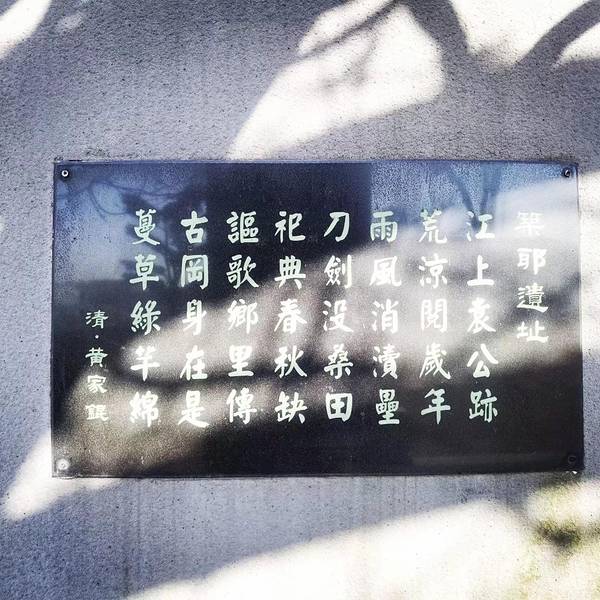 築耶遺址
江上袁公跡
荒涼閱歲年
雨風消瀆壘
刀劍没桑田
祀典春秋缺
謳歌鄉里傳
古岡身在是
蔓草綠芊綿
清·黃家錕